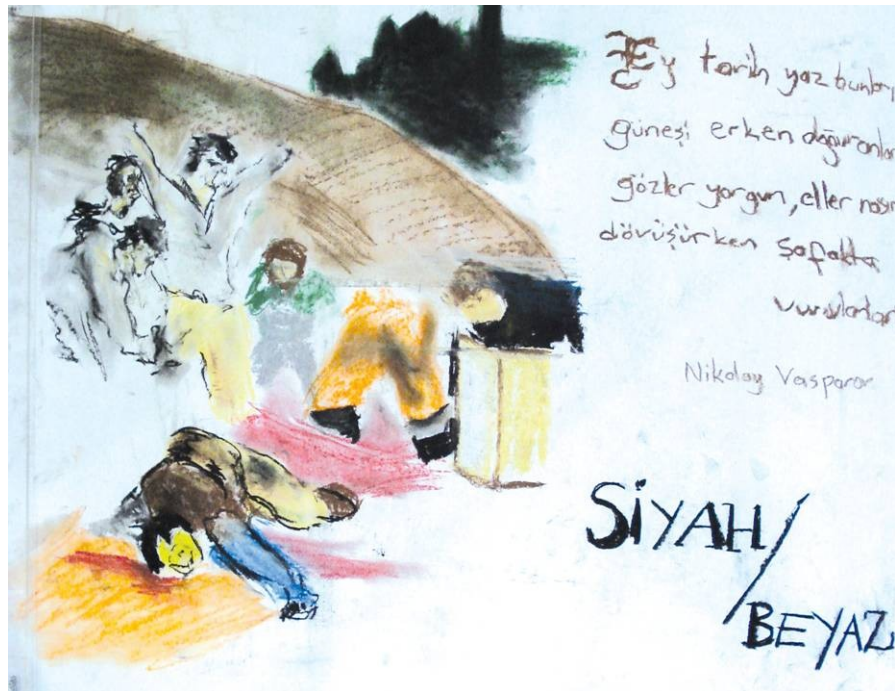 Ey tarih yaz bunları
güneşi erken doğuranlar
gözler yorgun, eller nasır
dövüşürken şafakta
vurulanlar
Nikolay Vasparov
SİYAH/
BEYAZ